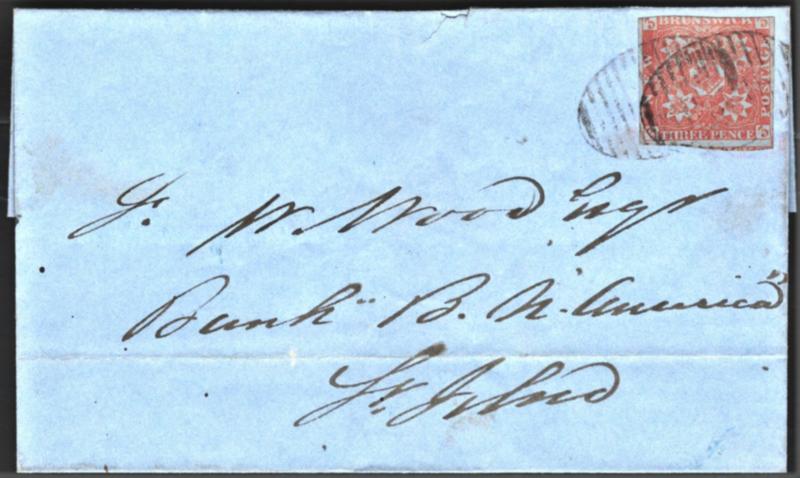 BRUNSWICK
NEW
POSTAGE
THREE PENCE
W. Wood Esqr
Bank B. N. America
St. John